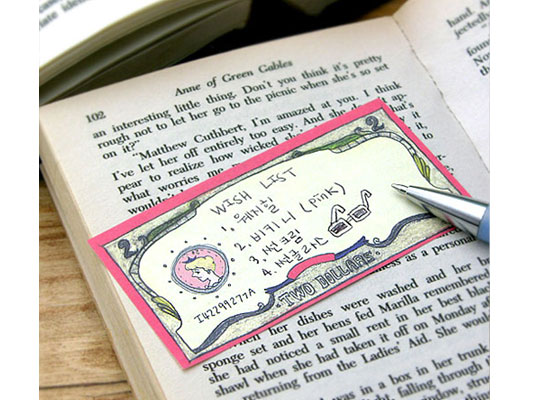 102 Anne of Green Gables
an interesting little thing. Don't you think it's pretty
rough not to let her go to the picnic when she's so set
on it?"
"Matthew Cuthbert, I'm amazed at you. I think
I've let her off entirely too easy. And she ap-
pear to realize how wicked she
what worries me
2
2
WISH LIST
1. 웨지힐
2. 비키니 (pink)
3. 썬크림
4. 썬글라스
I42299277A
TWO DOLLARS
as a personal
her dishes were washed and her
sponge set and her hens fed Marilla remembered
she had noticed a small rent in her best black
shawl when she had taken it off on Monday
returning from the Ladies' Aid. She
was in a box in her trunk
falling through
hand.
jectedly